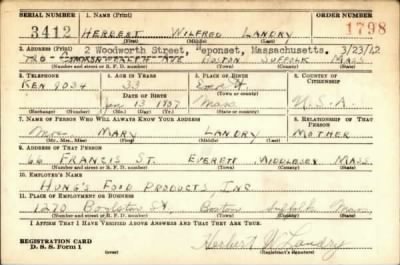 SERIAL NUMBER 1. NAME (Print) ORDER NUMBER
3412 HERBERT WILFRED LANDRY 1798
(First) (Middle) (Last)
2. ADDRESS (Print) 2 Woodworth Street, Neponset, Massachusetts. 3/23/42
720 COMMONWEALTH AVE BOSTON SUFFOLK MASS
(Number and street or R. F. D. number) (Town) (County) (State)
3. TELEPHONE 4. AGE IN YEARS 5. PLACE OF BIRTH 6. COUNTRY OF CITIZENSHIP
KEN 9034 33
DATE OF BIRTH
13 1907 Mass U.S.A.
(Exchange) (Number) (Mo.) (Day) (Yr.) (State or country)
7. NAME OF PERSON WHO WILL ALWAYS KNOW YOUR ADDRESS 8. RELATIONSHIP OF THAT PERSON
Mrs. MARY LANDRY MOTHER
(Mr., Mrs., Miss) (First) (Middle) (Last)
9. ADDRESS OF THAT PERSON
66 FRANCIS ST. EVERETT MIDDLESEX MASS
(Number and street or R. F. D. number) (Town) (County) (State)
10. EMPLOYER'S NAME
FOOD PRODUCTS, INC
11. PLACE OF EMPLOYMENT OR BUSINESS
1270 Boylston St. Boston Suffolk Mass
(Number and street or R. F. D. number) (Town) (County) (State)
I AFFIRM THAT I HAVE VERIFIED ABOVE ANSWERS AND THAT THEY ARE TRUE.
REGISTRATION CARD
D. S. S. Form 1 Herbert W. Landry
(over) (Registrant's signature)